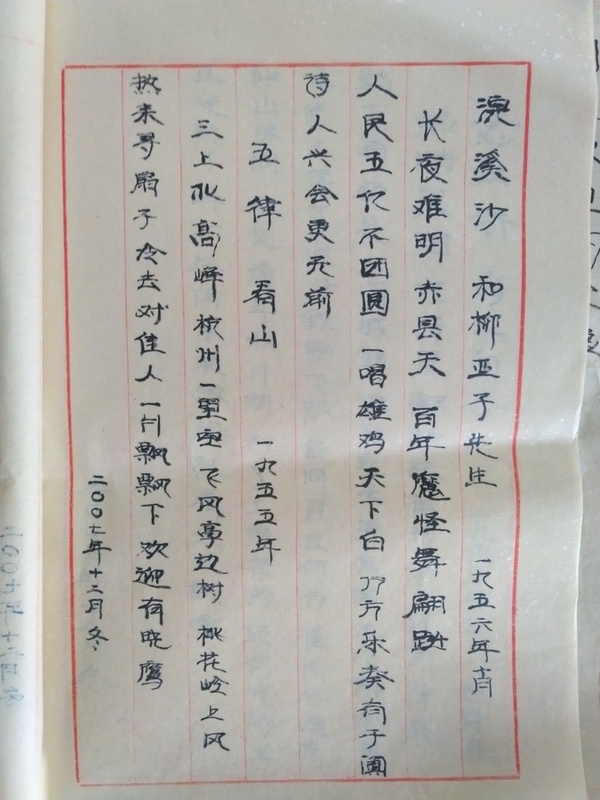 浣溪沙 和柳亚子先生 一九五六年十一月
长夜难明赤县天 百年魔怪舞翩跹
人民五亿不团圆 一唱雄鸡天下白 万方乐奏有于阗
诗人兴会更无前
五律 看山 一九五五年
三上北高峰 杭州一望空 飞凤亭边树 桃花岭上风
热来寻扇子 冷去对佳人 一片飘飘下 欢迎有晚鹰
二00七年十二月冬